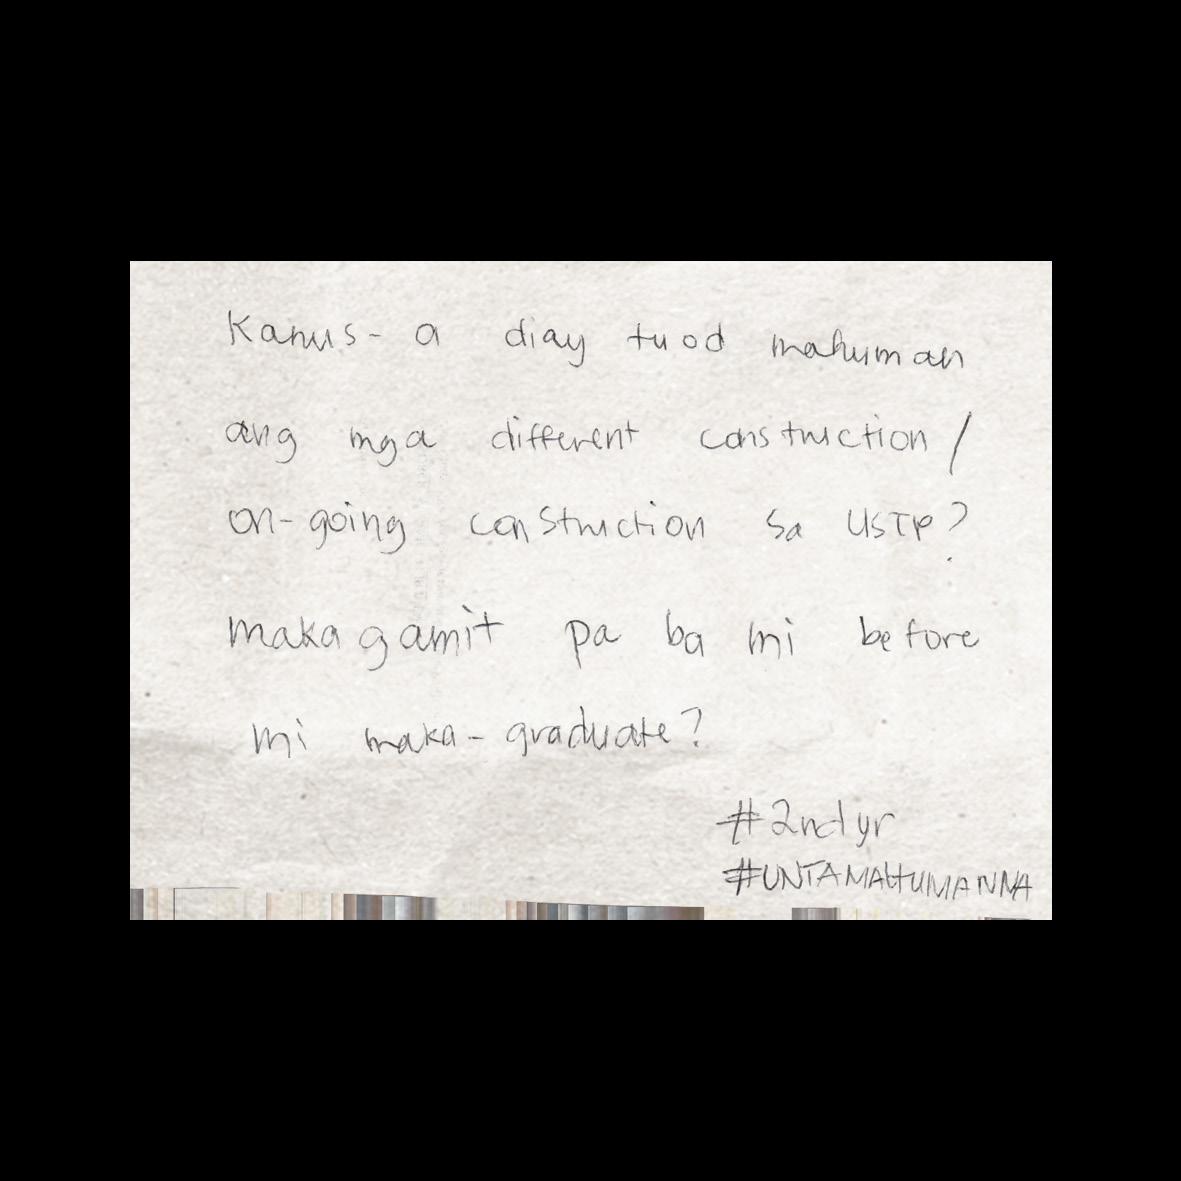 Kanus-a diay tuod mahuman
ang mga different construction/
on-going construction sa USTP?
makagamit pa ba mi before
mi maka-graduate?
#2nd yr
#UNTAMAHUMANNA